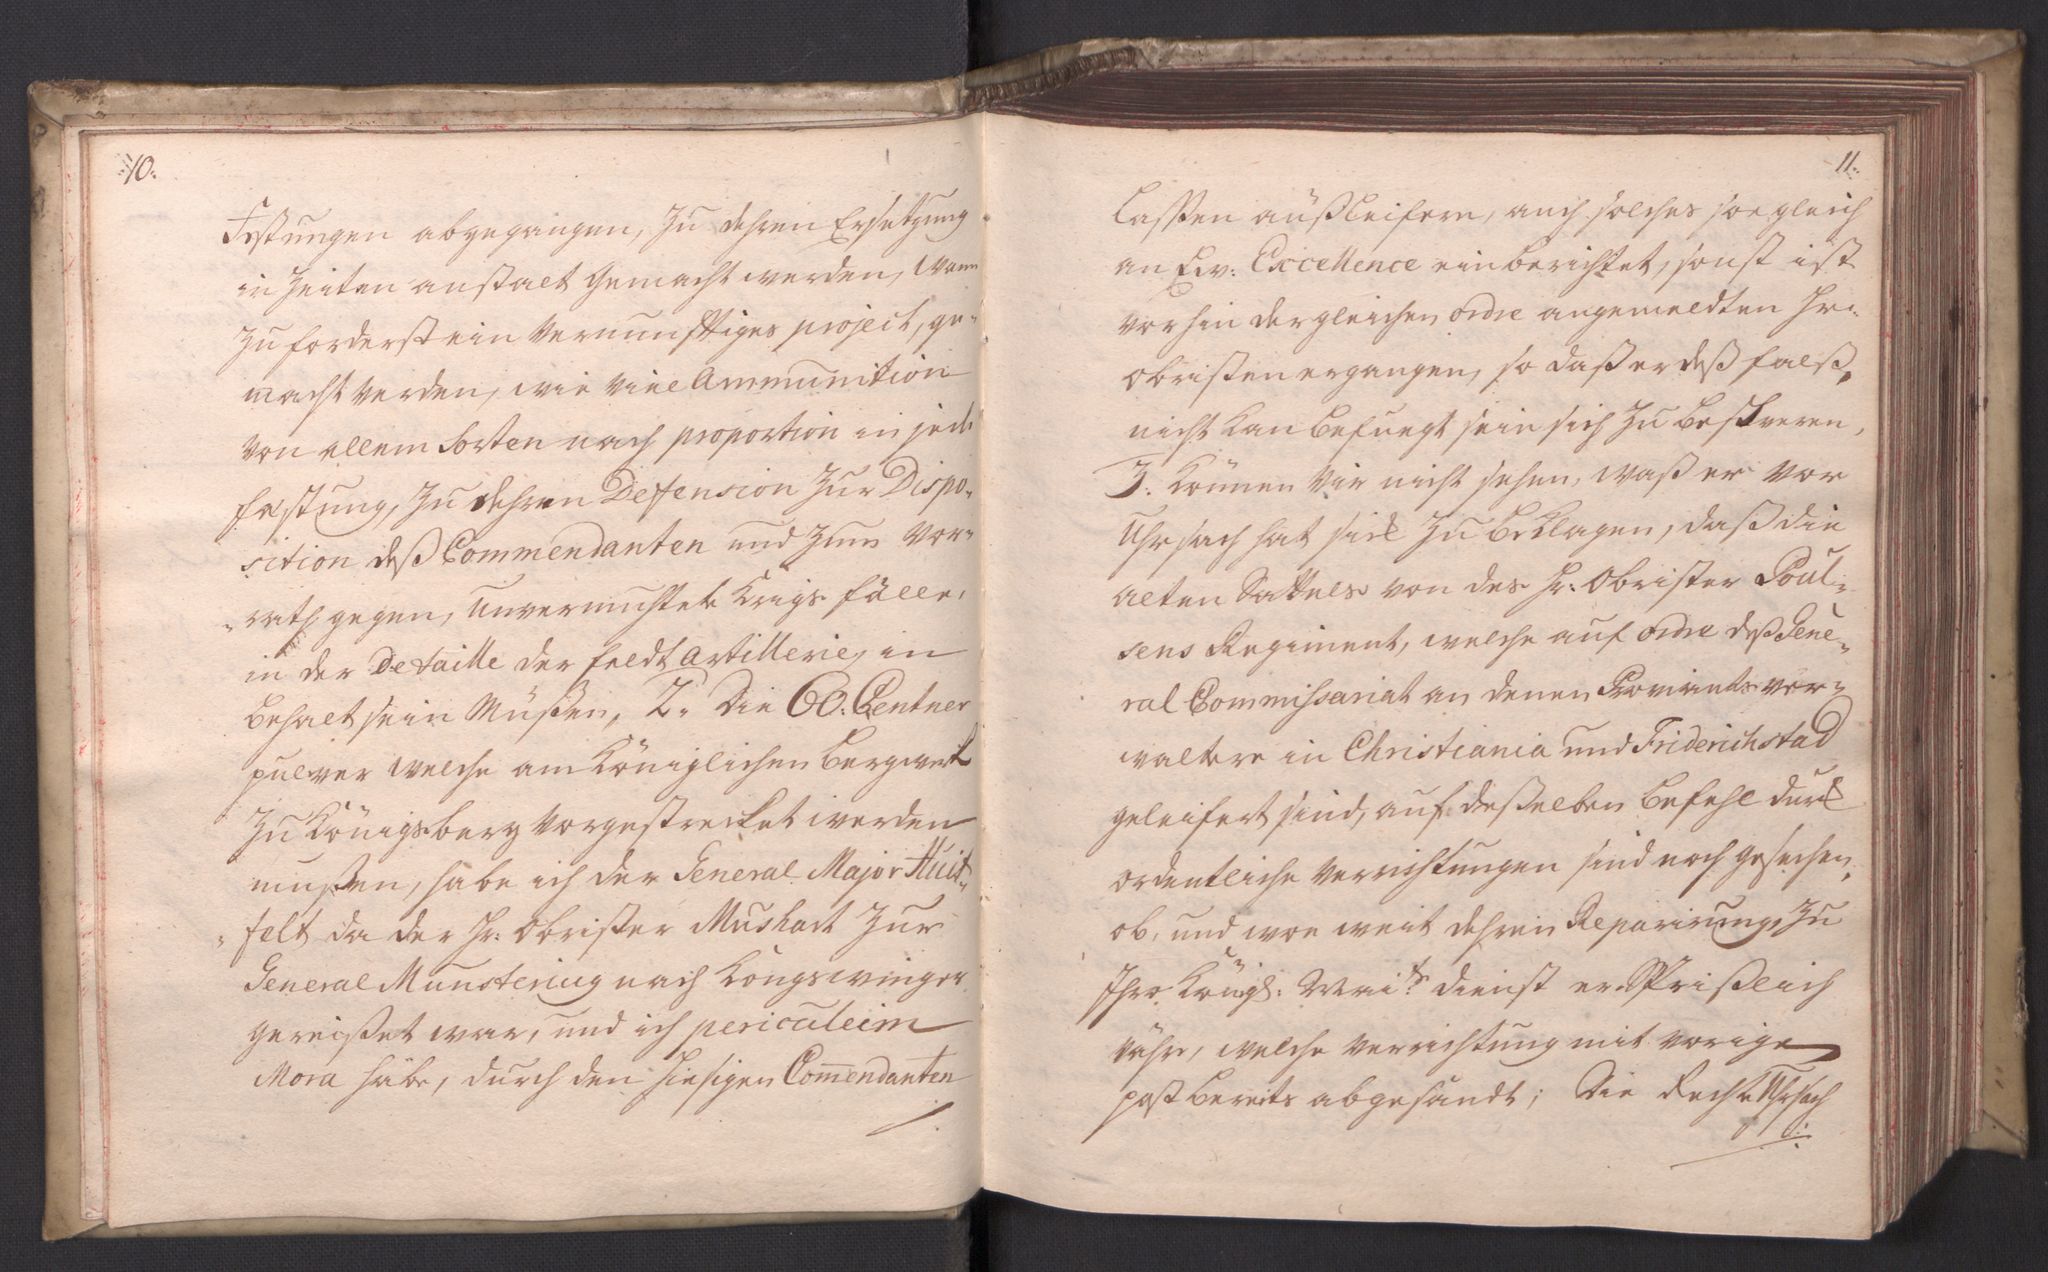 :10:
Festungen abgegangen, Zu dehren Ersetzung
in Zeiten anstalt Gemacht werden, wann
Zuforderst ein Vernunfftiges project, ge-
macht Verden, wie viel Ammunition
von allem Sorten nach proportion in jede
festung, Zu dehren Deffension Zur Dispo-
sition deß Commendanten und Zum Vor-
-rath gegen, Unvermuhtete Krigs fälle,
in der Detaille der feldt Artillerie, in
Behalt sein Müßen, 2. Die 60. Centner
pulver welche am Königlichen Bergwerk
Zu Königsberg Vorgestrecket werden
mußen, habe ich der General Major Huit-
-felt da der Hr: Obrister Mushart Zur
General Munstering nach Kongswinger
gereißet war, und ich periculeim
Mora habe, durch den hiesigen Com̄endanten
11.
Laßen außleifern, auch solches soegleich
an Ew: Excellence einberichtet, sonst ist
vorhin dergleichen ordre angemeldten Hr:
Obristen ergangen, so daß er deß falß,
nicht Kan Befuegt sein sich Zu Beskveren,
3. Können Vir nicht sehen, waß er vor
Uhrsach hat sich Zu Beklagen, daß die
alten Sattels von des Hr: Obrister Poul-
sens Regiment, welche auf ordre deß Gene-
ral Commissariat an denen Proviantsver-
waltere in Christiania und Friderichstad
geleifert sind, auf deßelben Befehl durch
ordentliche Verrichtungen sind nach gesechen,
ob, und woe weit dehren Reparirung, Zu
Ihro Königl: Mai:ts dienst erSPrißlich
Vähre, welche Verrichtung mit vorige
post Bereits abgesandt; Die Rechte Uhrsach